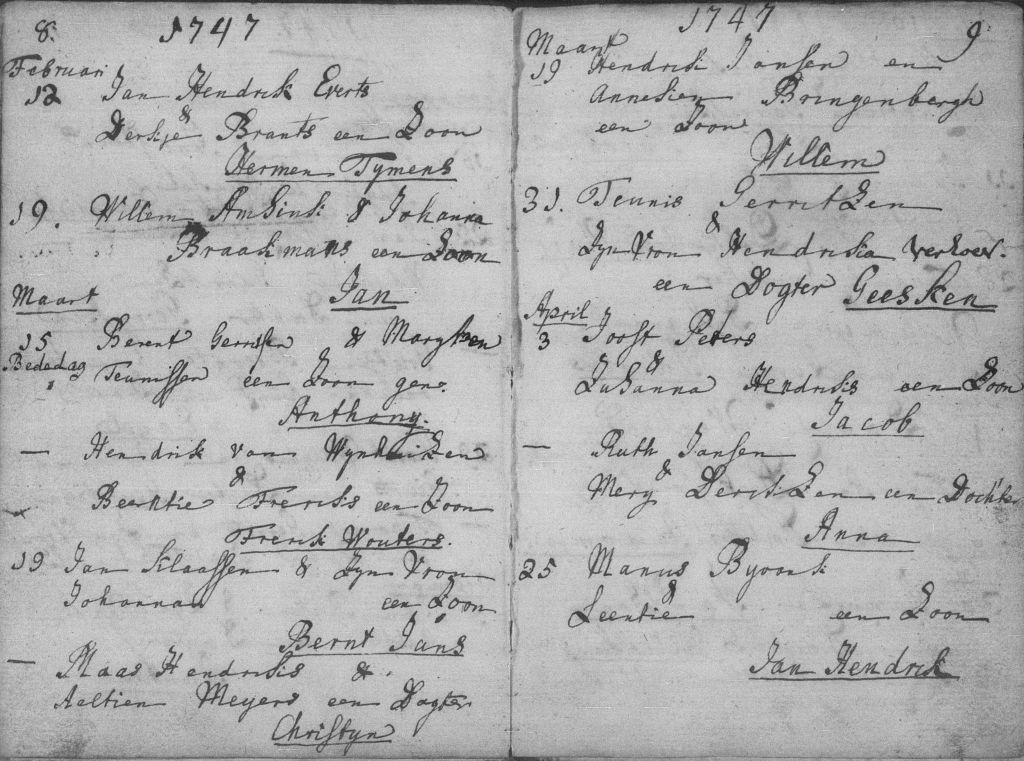 8. 1747
Februari
12 Jan Hendrik Everts
&
Derkje Brants een Zoon
Hermen Tymens
19. Willem Amsink & Johanna
Braakmans een Zoon
Maart Jan
15 Berent Gerrissen & Marytien
Bededag Teunissen een Zoon gen.
Anthony.
— Hendrik van
&
Beerntie Freriks een Zoon
Frerik Wouters.
19 Jan Klaassen & Zyn Vrou
Johanna een Zoon
Bernt Jans
— Maas Hendriks &
Aeltien Meyers een Dogter
Christyn
1747 9.
Maart
19 Hendrik Jansen en
Annesien Bringenbergh
een Zoon
Willem
31. Teunis Gerritzen
&
Zyn Vrou Hendrika Verhoef.
een Dogter Geesken
April
3 Joost Peters
&
Susanna Hendriks een Zoon
Jacob
— Ruth Jansen
&
Mery Derckzen een Dochter
Anna
25 Manus Byvank
&
Leentie een Zoon
Jan Hendrik